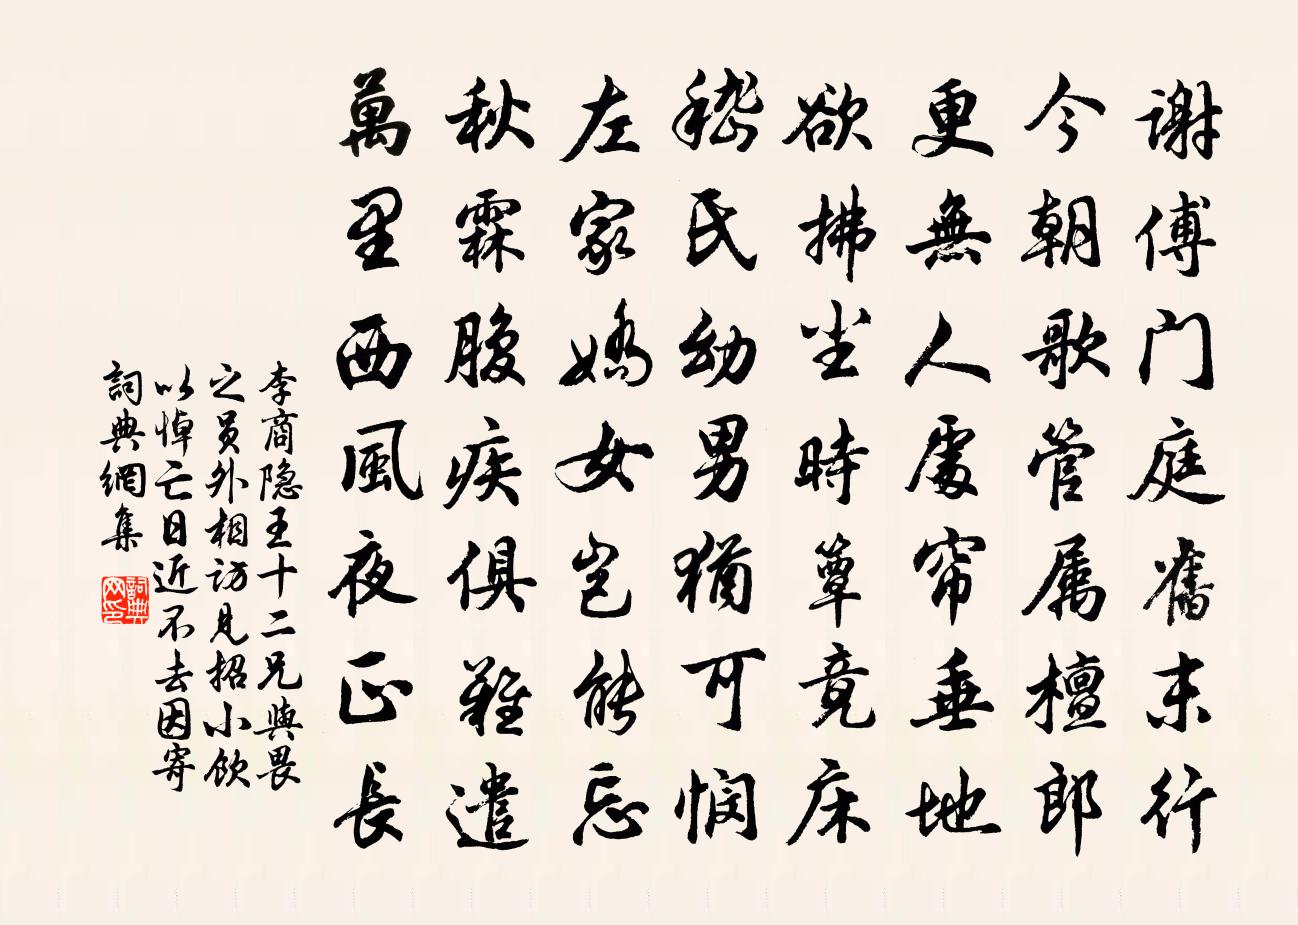 謝傅门庭舊末行
今朝歌管属檀郎
更無人處帘垂地
欲拂尘時簟竟床
嵇氏幼男猶可悯
左家嬌女岂能忘
秋霖腹疾俱難遣
萬里西風夜正長
李商隐王十二兄與畏
之员外相访見招小飲
以悼亡日近不去因寄
詞典網集
詞典网印